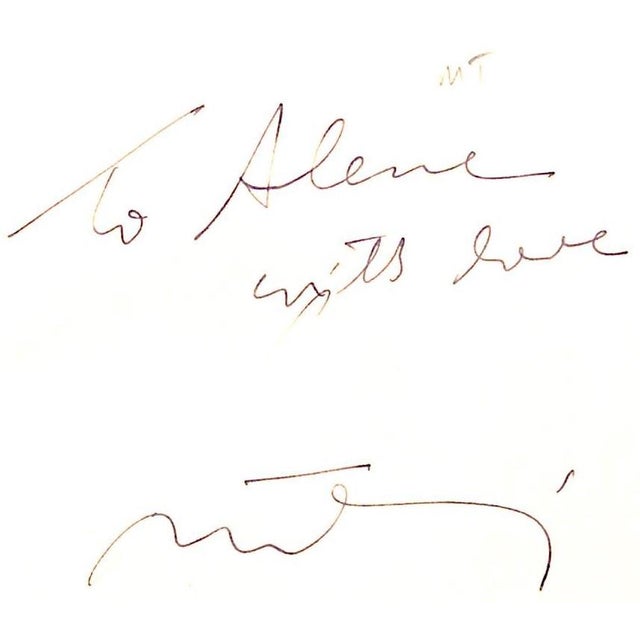 MT
To Alene
with love